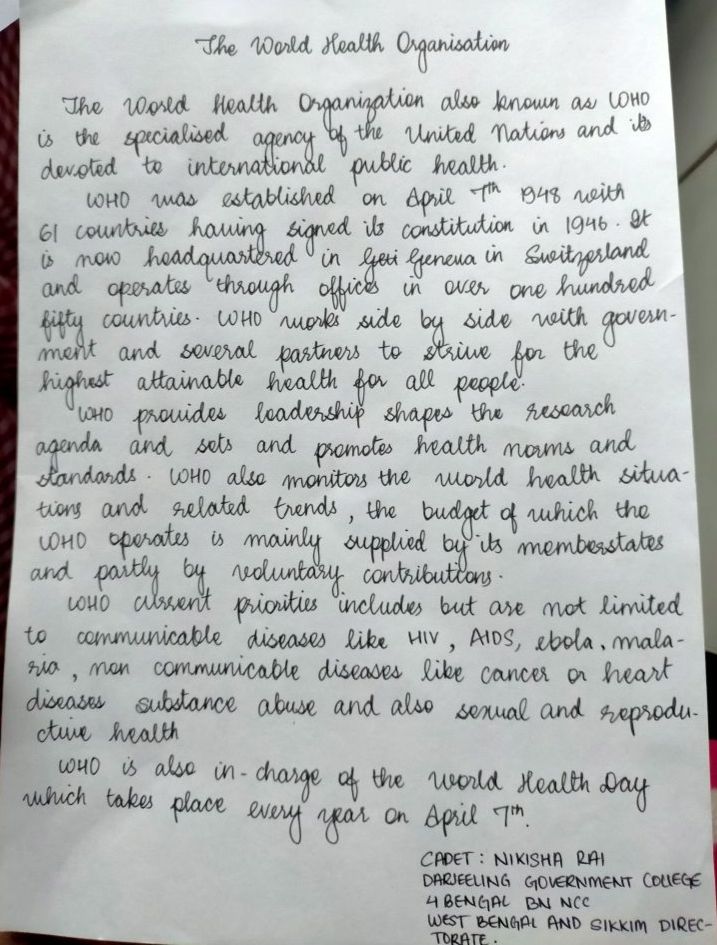 The World Health Organisation
The World Health Organization also known as WHO
is the specialised agency of the United Nations and its
devoted to international public health.
WHO was established on April 7th 1948 with
61 countries having signed its constitution in 1946. It
is now headquartered in Geneva in Switzerland
and operates through offices in over one hundred
fifty countries. WHO works side by side with govern-
ment and several partners to strive for the
highest attainable health for all people.
WHO provides leadership shapes the research
agenda and sets and promotes health norms and
standards. WHO also monitors the world health situa-
tions and related trends, the budget of which the
WHO operates is mainly supplied by its memberstates
and partly by voluntary contributions.
WHO current priorities includes but are not limited
to communicable diseases like HIV, AIDS, ebola, mala-
ria, non communicable diseases like cancer or heart
diseases substance abuse and also sexual and reprodu-
ctive health
WHO is also in-charge of the world Health Day
which takes place every year on April 7th.
CADET : NIKISHA RAI
DARJEELING GOVERNMENT COLLEGE
4 BENGAL BN NCC
WEST BENGAL AND SIKKIM DIREC-
TORATE.